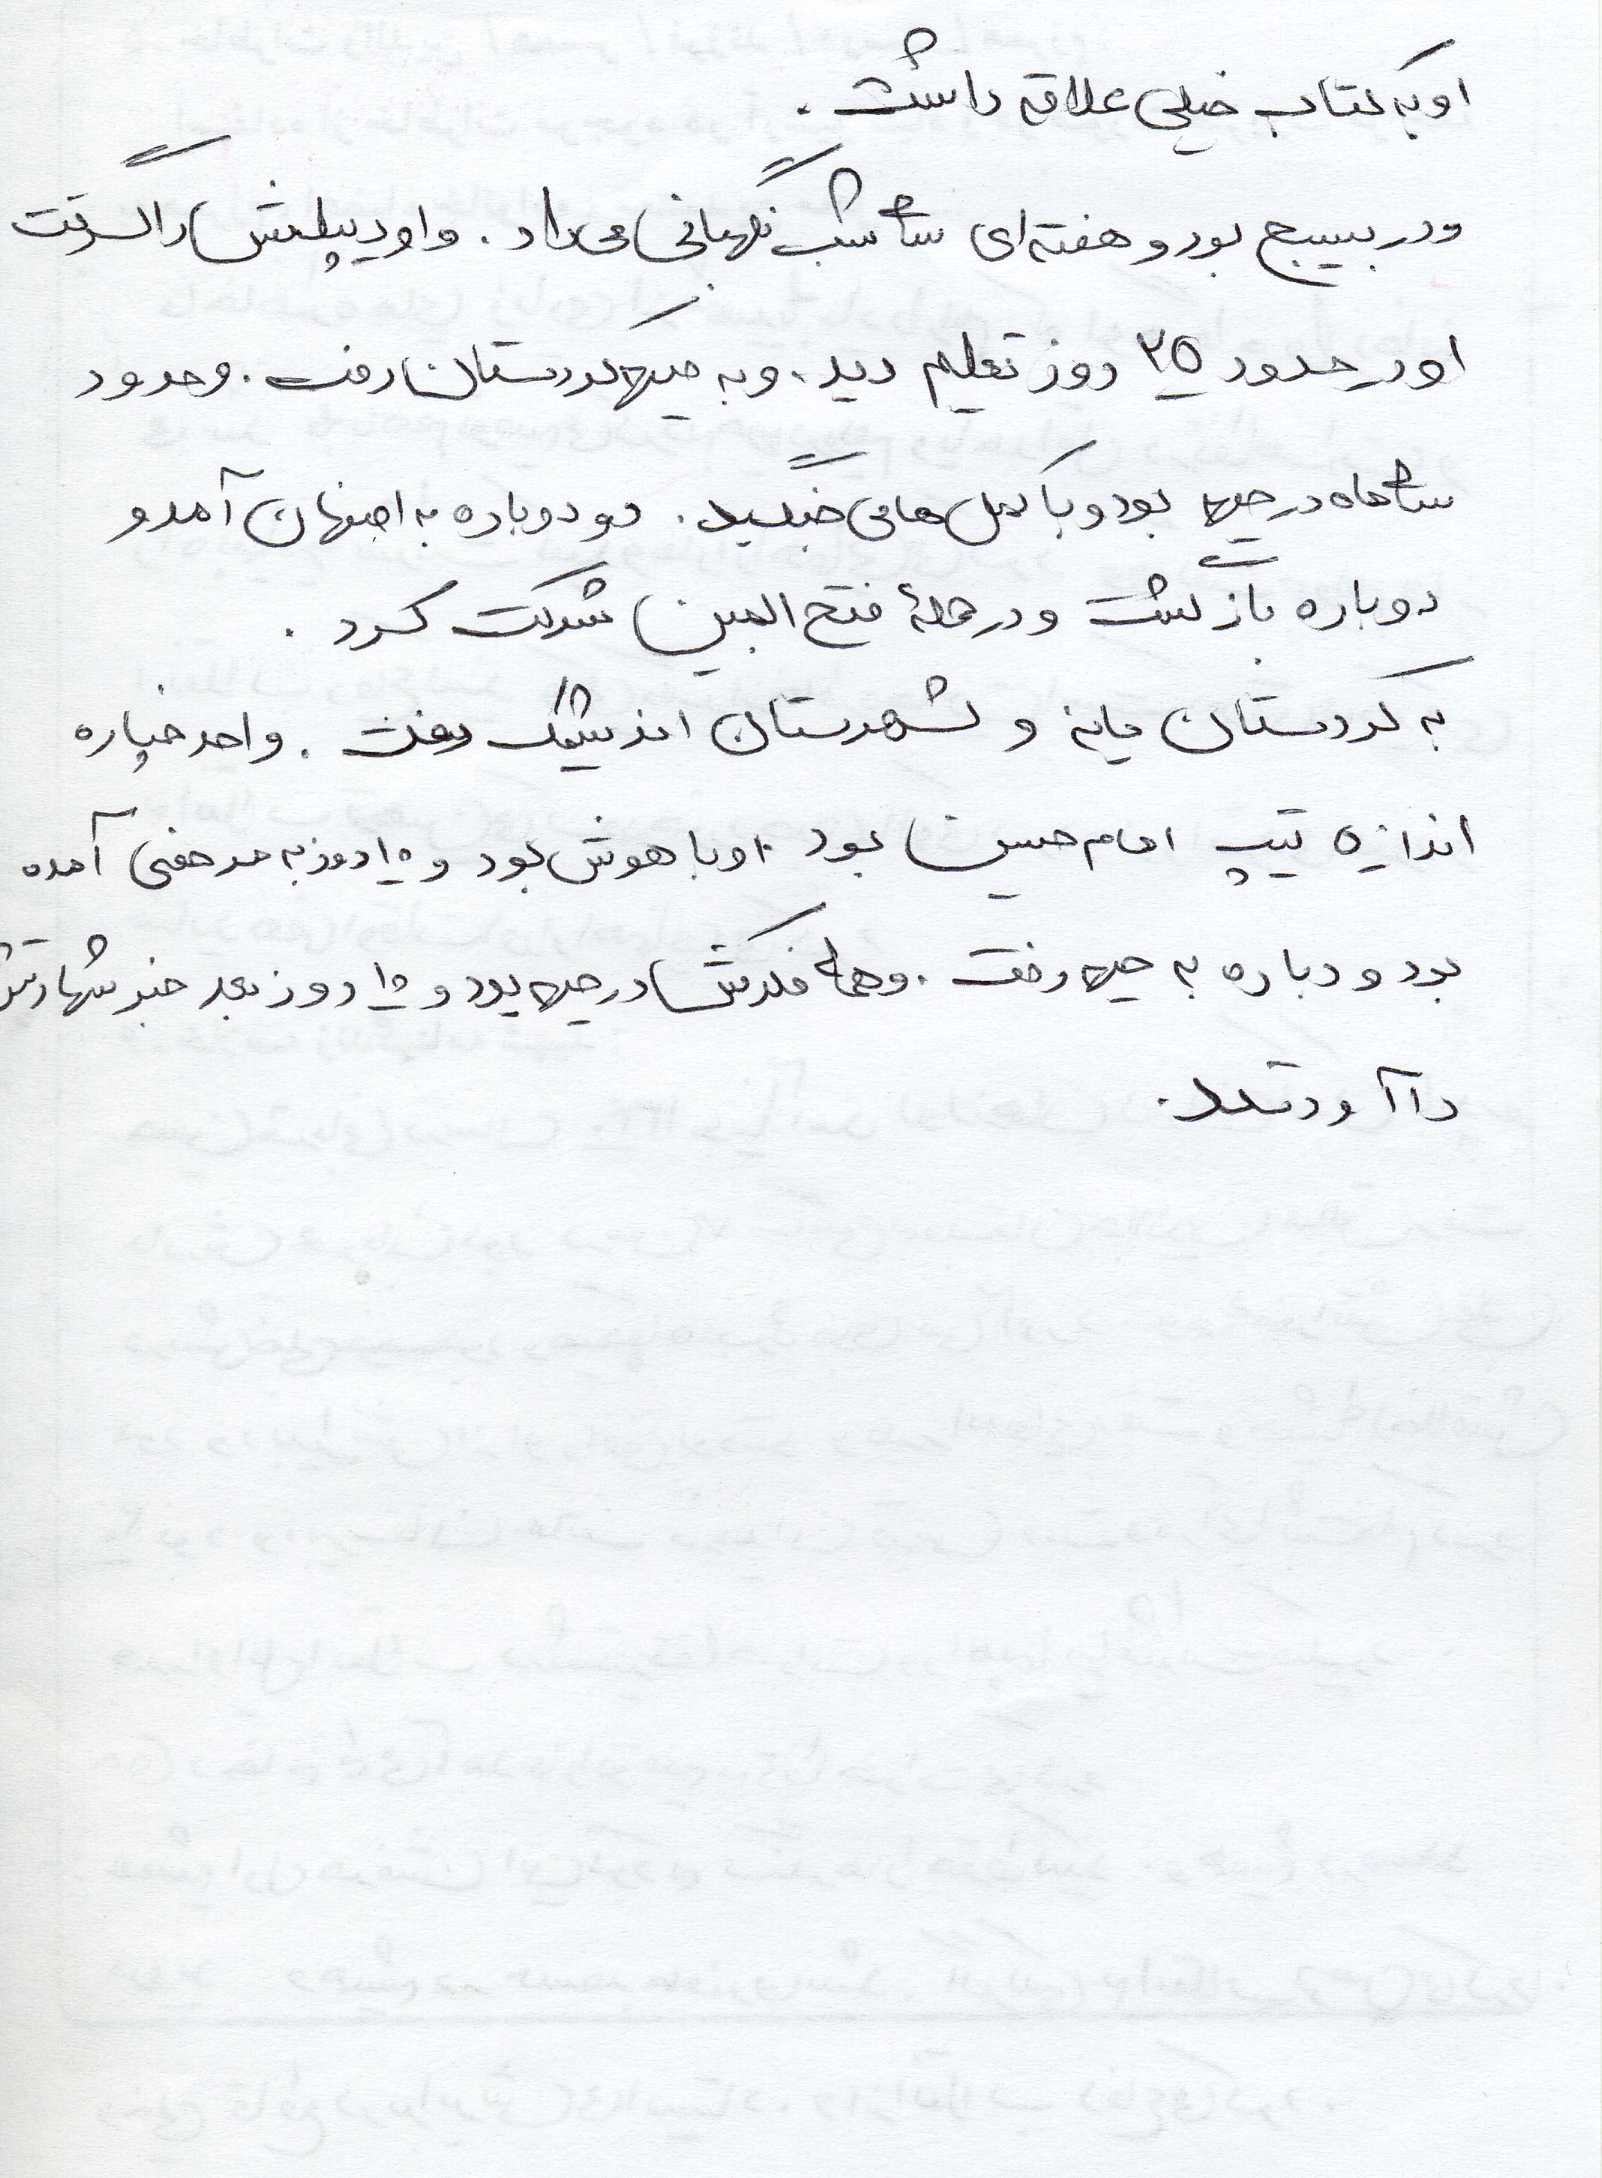 او به کتاب خیلی علاقه داشت.
و در بسیج بود و هفته‌ای شش شب نگهبانی می‌داد. و او دیپلمش را گرفت
او در حدود ۲۵ روز تعلیم دید. و به جبهه کردستان رفت. و حدود
شش ماه در جبهه بود و با کمل‌ها می‌جنگید. و دوباره به اصفهان آمد و
دوباره بازگشت و در حملهٔ فتح المبین شرکت کرد.
به کردستان بانه و شهرستان اندیمشک رفت. واحد خمپاره
اندازه تیپ امام حسین بود. او با هوش بود و ۱۵ روز به مرخصی آمده
بود و دباره به جبهه رفت. و همهٔ فکرش در جبهه بود و ۱۵ روز بعد خبر شهادتش
را آوردند.